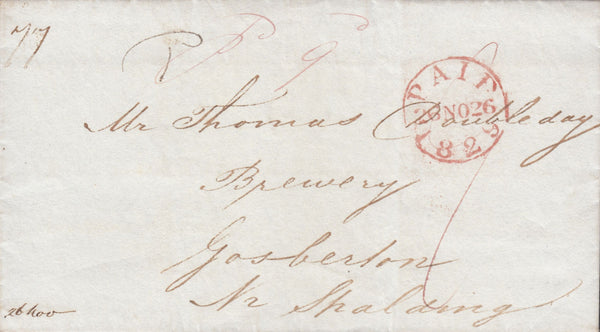 P P 9
PAID
26 NO 26
1829
Mr Thomas Doubleday
Brewery
Gosberton
Nr Spalding
26 Nov